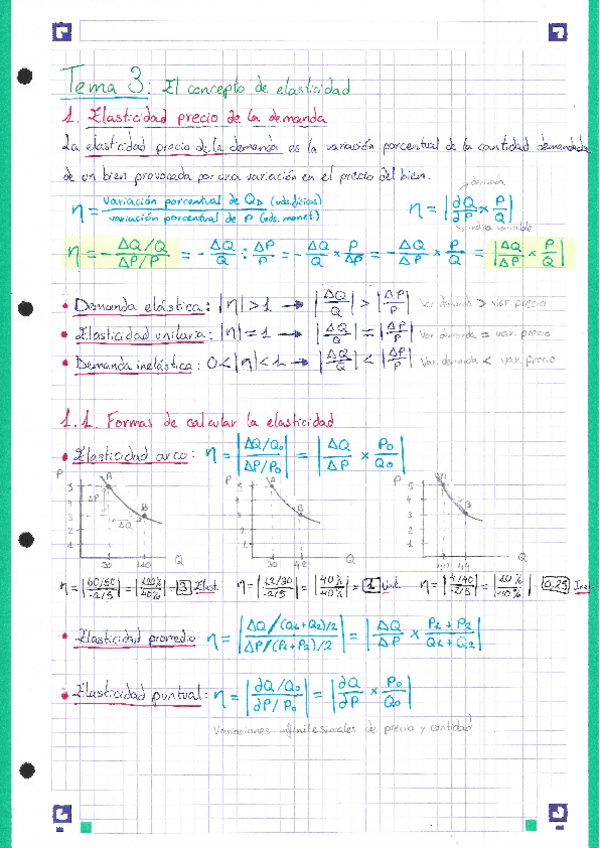 Tema 3: El concepto de elasticidad
1. Elasticidad precio de la demanda
La elasticidad precio de la demanda es la variación porcentual de la cantidad demandada
de un bien provocada por una variación en el precio del bien.
η = variación porcentual de QD (uds. físicas) / variación porcentual de P (uds. monet.)
η = |∂Q/∂P × P/Q|
η = - (ΔQ/Q)/(ΔP/P) = - ΔQ/Q : ΔP/P = - ΔQ/Q × P/ΔP = - ΔQ/ΔP × P/Q = |ΔQ/ΔP × P/Q|
• Demanda elástica: |η| > 1 → |ΔQ/Q| > |ΔP/P| Var demanda > var precio
• Elasticidad unitaria: |η| = 1 → |ΔQ/Q| = |ΔP/P| Var demanda = var. precio
• Demanda inelástica: 0 < |η| < 1 → |ΔQ/Q| < |ΔP/P| Var. demanda < var. precio
1.1. Formas de calcular la elasticidad
• Elasticidad arco: η = |(ΔQ/Q0)/(ΔP/P0)| = |ΔQ/ΔP × P0/Q0|
P 5 4 3 2 1 A B ΔP ΔQ Q
P 5 4 3 2 1 A B 30 42 Q
P 5 4 3 2 1 Q
η = = 3 Elást.
η = |12/30 / -2/5| = |40% / -40%| = 1 Unit.
η = |4/40 / -2/5| = |10% / -40%| = 0.25 Inel.
• Elasticidad promedio: η = |ΔQ/(Q1+Q2)/2 / ΔP/(P1+P2)/2| = |ΔQ/ΔP × (P1+P2)/(Q1+Q2)|
• Elasticidad puntual: η = |(∂Q/Q0)/(∂P/P0)| = |∂Q/∂P × P0/Q0|
Variaciones infinitesimales de precio y cantidad